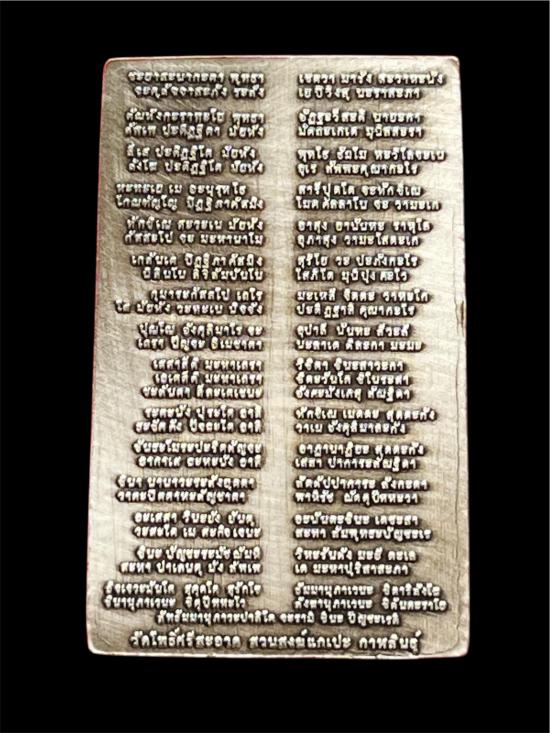 ชะยาสะนากะตา พุทธา เชตวา มารัง สะวาหะนัง
จะตุสัจจาสะภัง ระสัง เย ปิวิงสุ นะราสะภา
ตัณหังกะราทะโย พุทธา อัฏฐะวีสะติ นายะกา
สัพเพ ปะติฏฐิตา มัยหัง มัตถะเกเต มุนิสสะรา
สีเส ปะติฏฐิโต มัยหัง พุทโธ ธัมโม ทะวิโลจะเน
สังโฆ ปะติฏฐิโต มัยหัง อุเร สัพพะคุณากะโร
หะทะเย เม อะนุรุทโธ สารีปุตโต จะทักขิเณ
โกณฑัญโญ ปิฏฐิภาคัสมิง โมคคัลลาโน จะ วามะเก
ทักขิเณ สะวะเน มัยหัง อาสุง อานันทะ ราหุโล
กัสสะโป จะ มะหานาโม อุภาสุง วามะโสตะเก
เกสันเต ปิฏฐิภาคัสมิง สุริโย วะ ปะภังกะโร
นิสินโน สิริสัมปันโน โสภิโต มุนิปุงคะโว
กุมาระกัสสโป เถโร มะเหสี จิตตะ วาทะโก
โส มัยหัง วะทะเน นิจจัง ปะติฏฐาสิ คุณากะโร
ปุณโณ อังคุลิมาโร จะ อุปาลี นันทะ สีวะลี
เถรา ปัญจะ อิเมชาตา นะลาเต ติละกา มะมะ
เสสาสีติ มะหาเถรา วิชิตา ชินะสาวะกา
เอเตสีติ มะหาเถรา ชิตะวันโต ชิโนระสา
ชะลันตา สีละเตเชนะ อังคะมังเคสุ สัณฐิตา
ระตะนัง ปุระโต อาสิ ทักขิเณ เมตตะ สุตตะกัง
ธะชัคคัง ปัจฉะโต อาสิ วาเม อังคุลิมาละกัง
ขันธะโมระปะริตตัญจะ อาฏานาฏิยะ สุตตะกัง
อากาเส ฉะทะนัง อาสิ เสสา ปาการะสัณฐิตา
ชินา นานาวะระสังยุตตา สัตตัปปาการะ ลังกะตา
วาตะปิตตาทะสัญชาตา พาหิรัช ฌัตตุปัททะวา
อะเสสา วินะยัง ยันตุ อะนันตะชินะ เตชะสา
วะสะโต เม สะกิจเจนะ สะทา สัมพุทธะปัญชะเร
ชินะ ปัญชะระมัชฌัมหิ วิหะรันตัง มะฮี ตะเล
สะทา ปาเลนตุ มัง สัพเพ เต มะหาปุริสาสะภา
อิจเจวะมันโต สุคุตโต สุรักโข ธัมมานุภาเวนะ ชิตาริสังโฆ
ชินานุภาเวนะ ชิตุปัททะโว สังฆานุภาเวนะ ชิตันตะราโย
สัทธัมมานุภาวะปาลิโต จะรามิ ชินะ ปัญชะเรติ
วัดโพธิ์ศรีสะอาด สวนสงฆ์แกเปะ กาฬสินธุ์